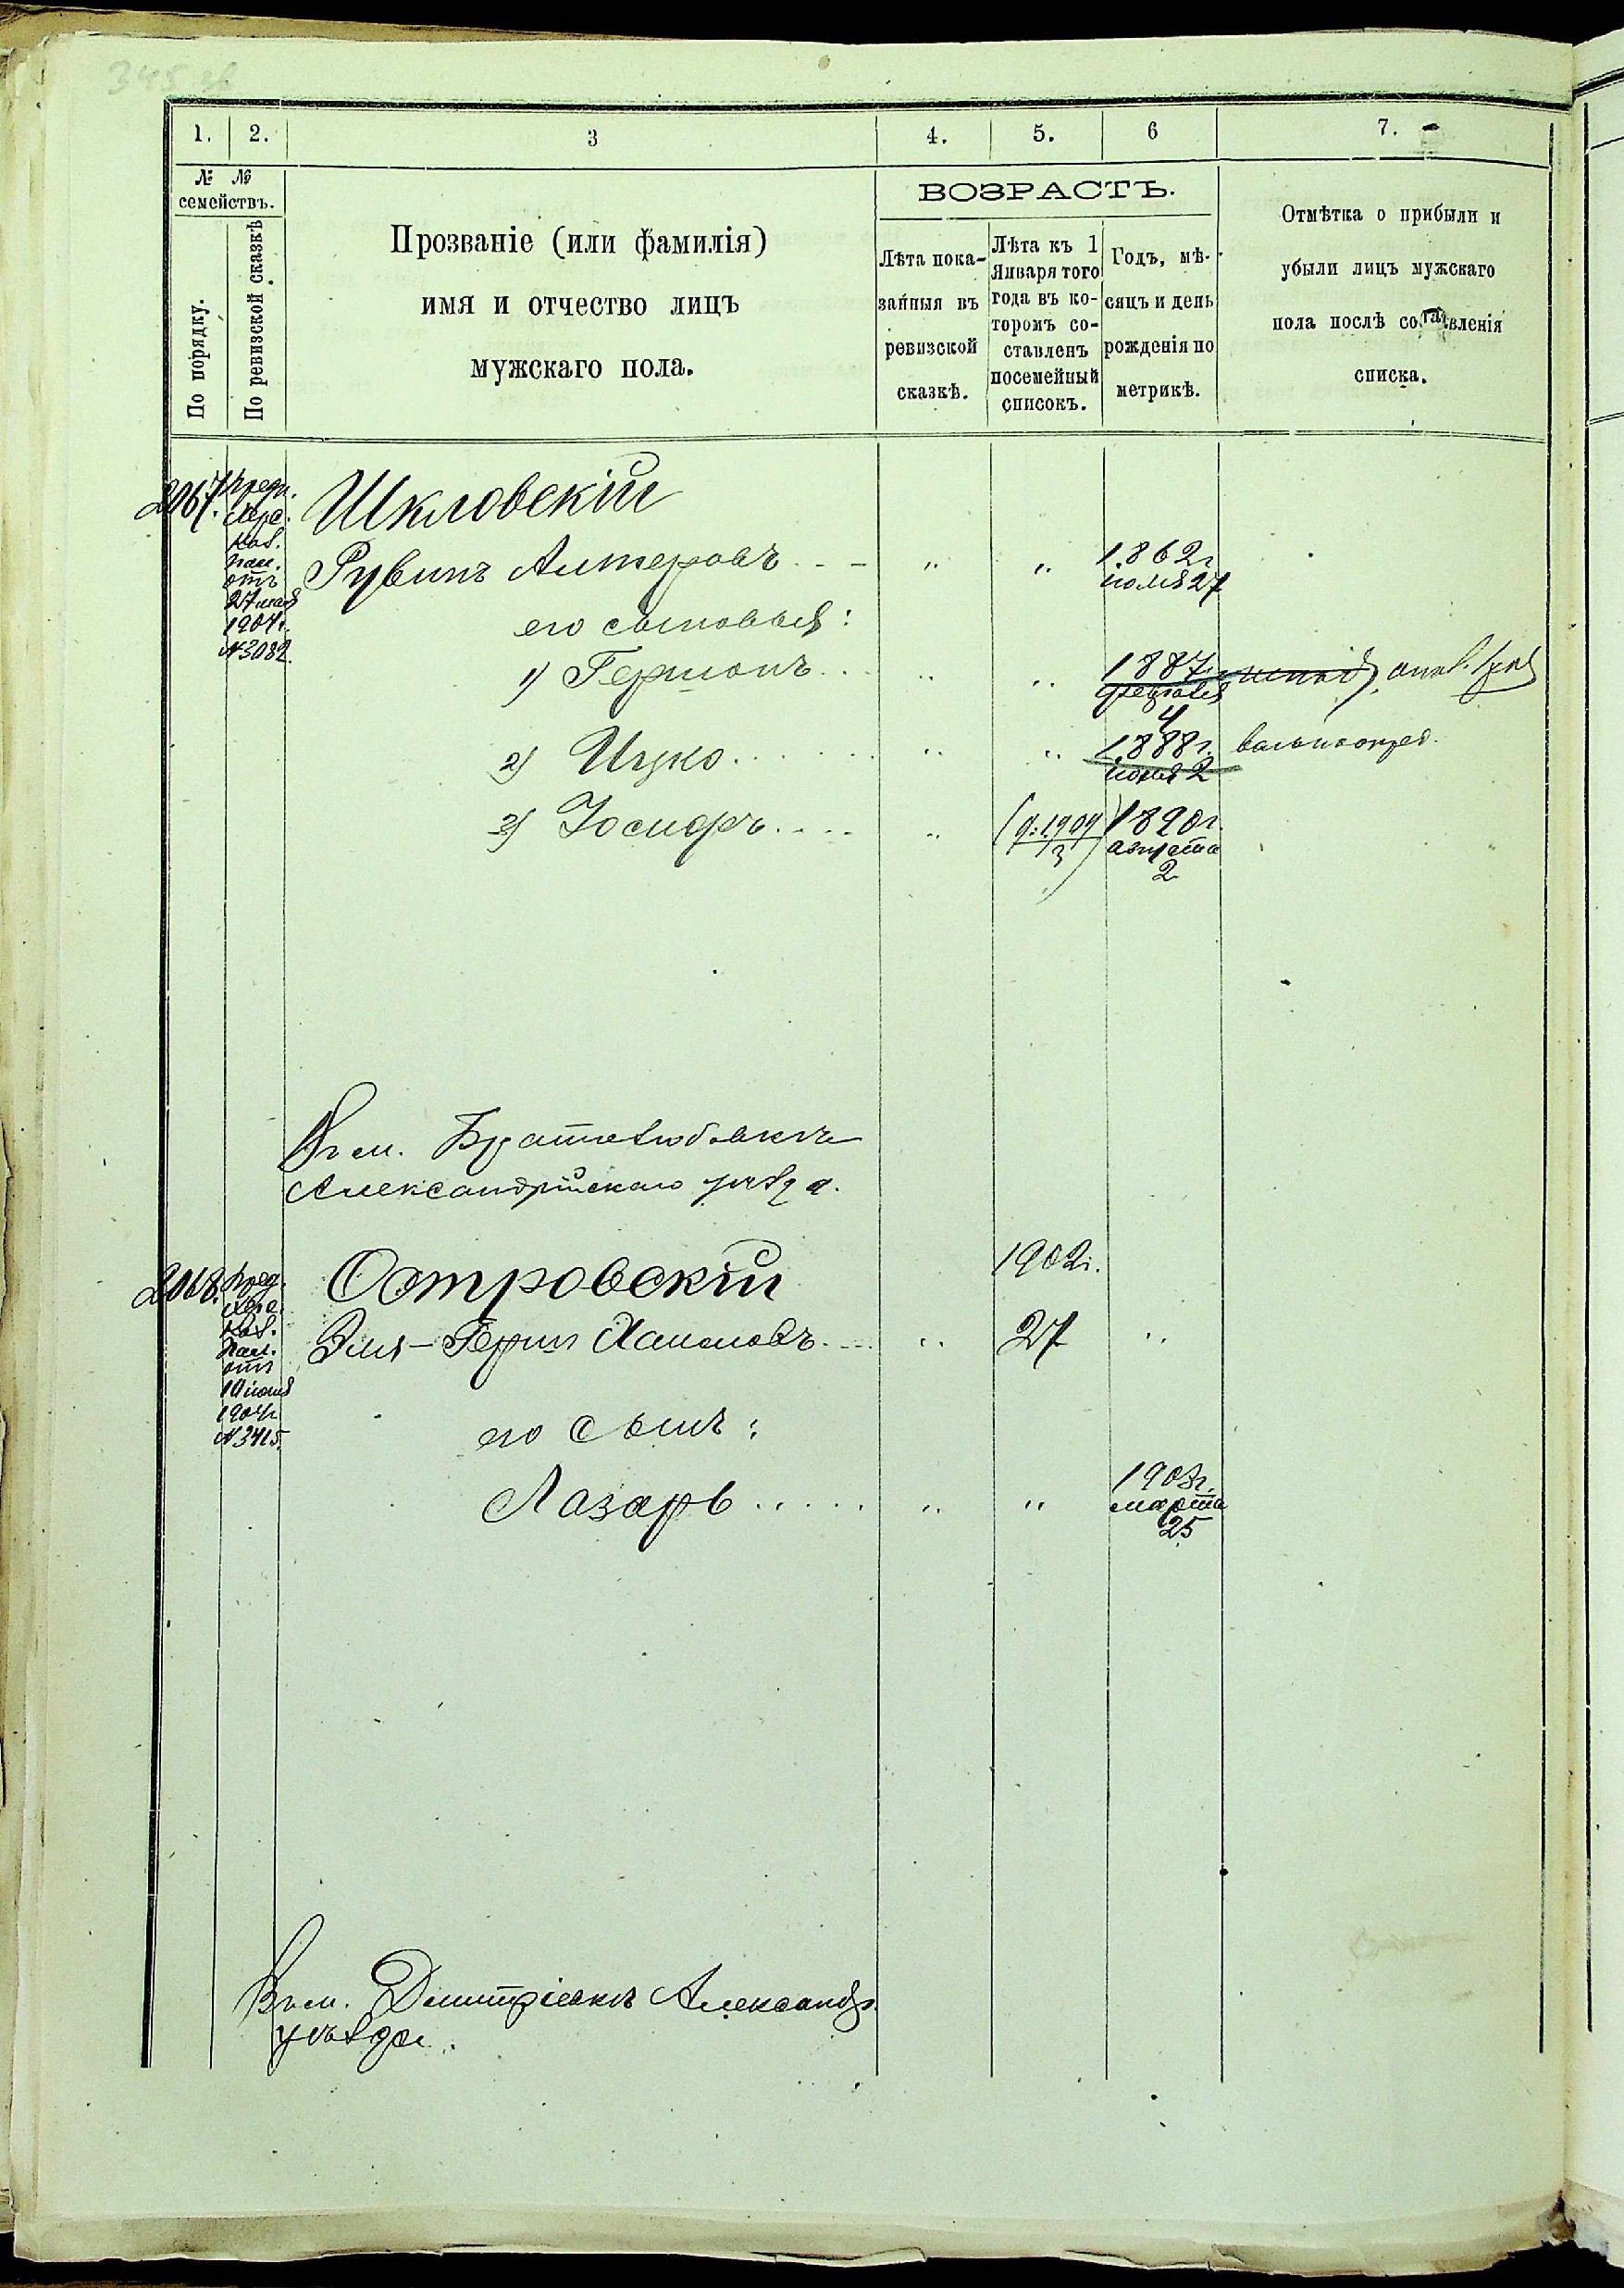 1. 2. 3 4. 5. 6 7.
№ №
семействъ.
По порядку.
По ревизской сказкѣ
Прозваніе (или фамилія)
имя и отчество лицъ
мужскаго пола.
ВОЗРАСТЪ.
Лѣта пока-
занныя въ
ревизской
сказкѣ.
Лѣта къ 1
Января того
года въ ко-
торомъ со-
ставленъ
посемейный
списокъ.
Годъ, мѣ-
сяцъ и день
рожденія по
метрикѣ.
Отмѣтка о прибыли и
убыли лицъ мужскаго
пола послѣ составленія
списка.
2067. Пред.
Хер.
Каз.
Пал.
отъ
27 мая
1904 г.
№ 3082.
Шкловскій
Рувинъ Алтеровъ - - " " 1862 г.
27
его сыновья:
1) Гершонъ . . . " " 1887
февраля
4
2) Ицко . . . . . " " 1888 г. вольноопред.
2
3) Іосифъ . . . . " 1890 г.
августа
2
Въ м. Братолюбовкѣ
Александрійскаго уѣзда.
2068. Пред.
Хер.
Каз.
Пал.
отъ
10 іюня
1904 г.
№ 3415.
Островскій 1902 г.
Эля-Герш Хаимовъ . - - - " 27 "
его сынъ:
Лазарь . . . . . " " 1903 г.
марта
25
Въ м. Дмитріевкѣ Александр.
уѣзда.